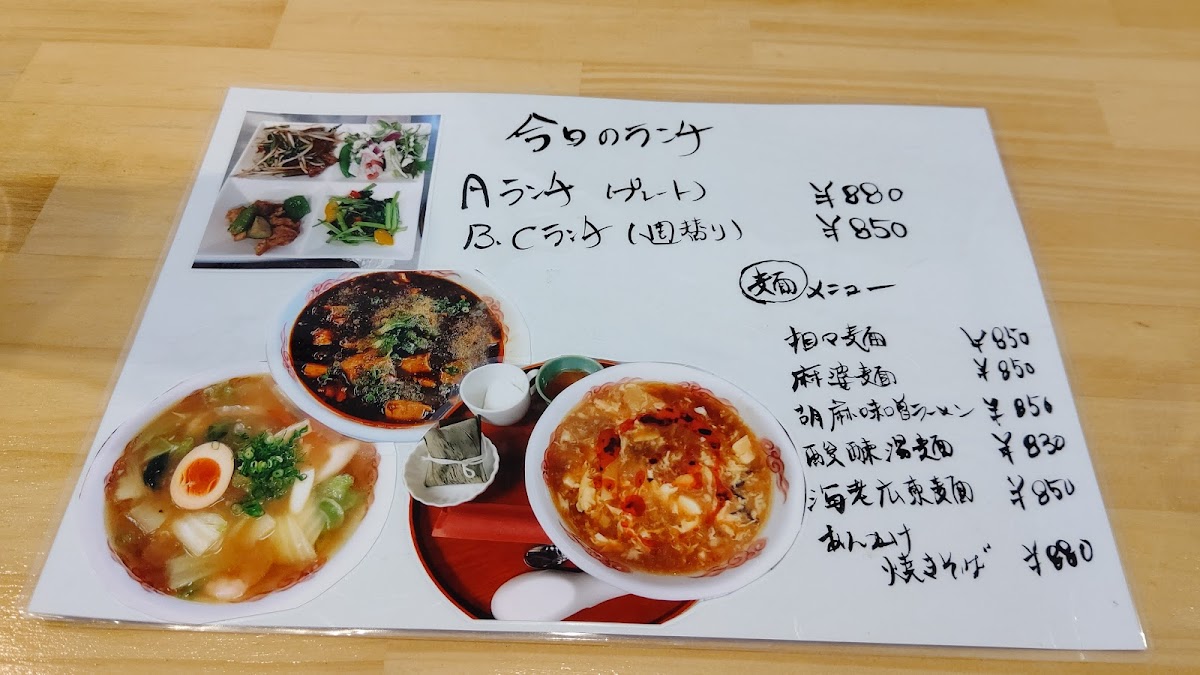 今日のランチ
Aランチ(プレート) ¥880
B.Cランチ(週替り) ¥850
麺メニュー
担々麺 ¥850
麻婆麺 ¥850
胡麻味噌ラーメン ¥850
酸辣湯麺 ¥830
海老広東麺 ¥850
あんかけ
焼きそば ¥880